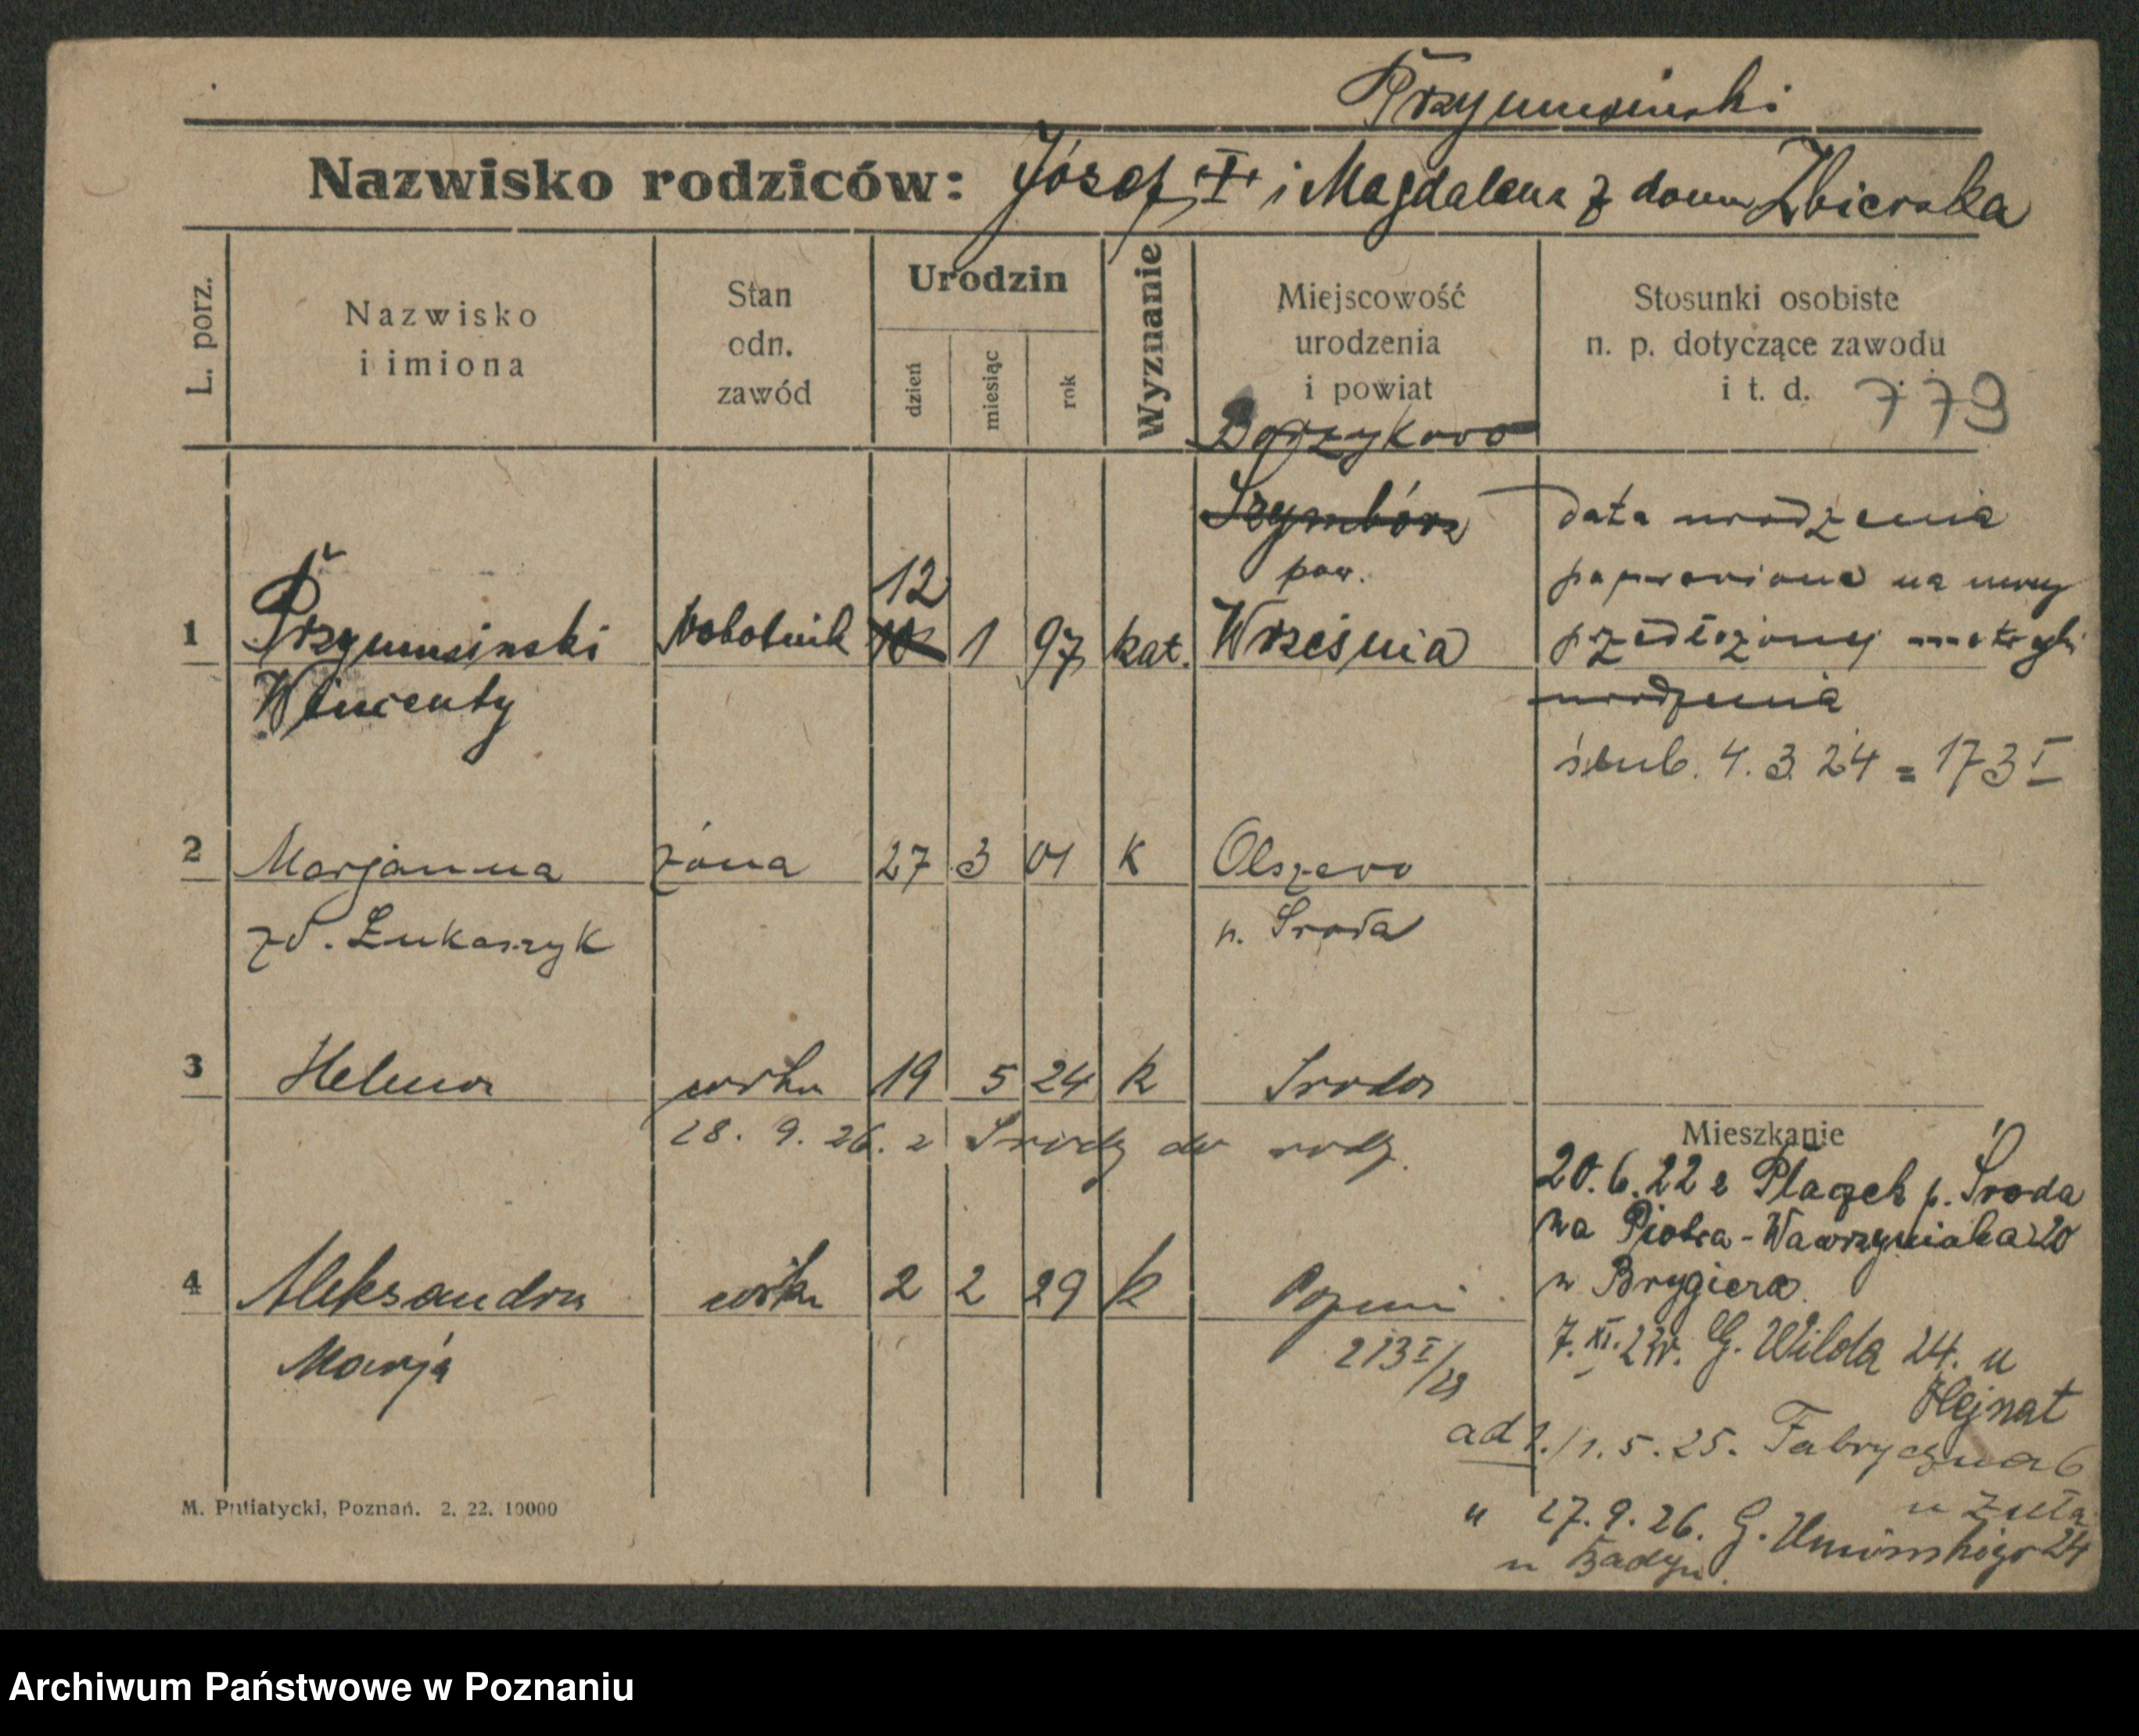 Przymusinski
Nazwisko rodziców: Józef + i Magdalena z domu Zbierska
L. porz.
Nazwisko
i imiona
Stan
odn.
zawód
Urodzin
dzień
miesiąc
rok
Wyznanie
Miejscowość
urodzenia
i powiat
Stosunki osobiste
n. p. dotyczące zawodu
i t. d. 779
Borzykowo
Szymbórz data urodzenia
pow. poprawiona na mocy
12
1 Przymusinski robotnik 10 1 97 kat. Września przedłożonej metryki
Wincenty urodzenia
ślub. 4. 3. 24 = 173 I
2 Marjanna żona 27 3 01 k Olszewo
zd. Łukaszyk p. Środa
3 Helena córka 19 5 24 k Sroda
28. 9. 26. z Srody do rodz.
Mieszkanie
20. 6. 22 z Płaczek p. Środa
na Piotra-Wawrzyniaka 20
u Brygiera.
4 Aleksandra córka 2 2 29 k Poznań
Marja 213 I/29
7. XI. 22. G. Wilda 24. u
Hejnat
ad 1./ 1. 5. 25. Fabryczna 6
u Zuła
" 27. 9. 26. G. Umińskiego 24
u
M. Putiatycki, Poznań. 2. 22. 10000
Archiwum Państwowe w Poznaniu